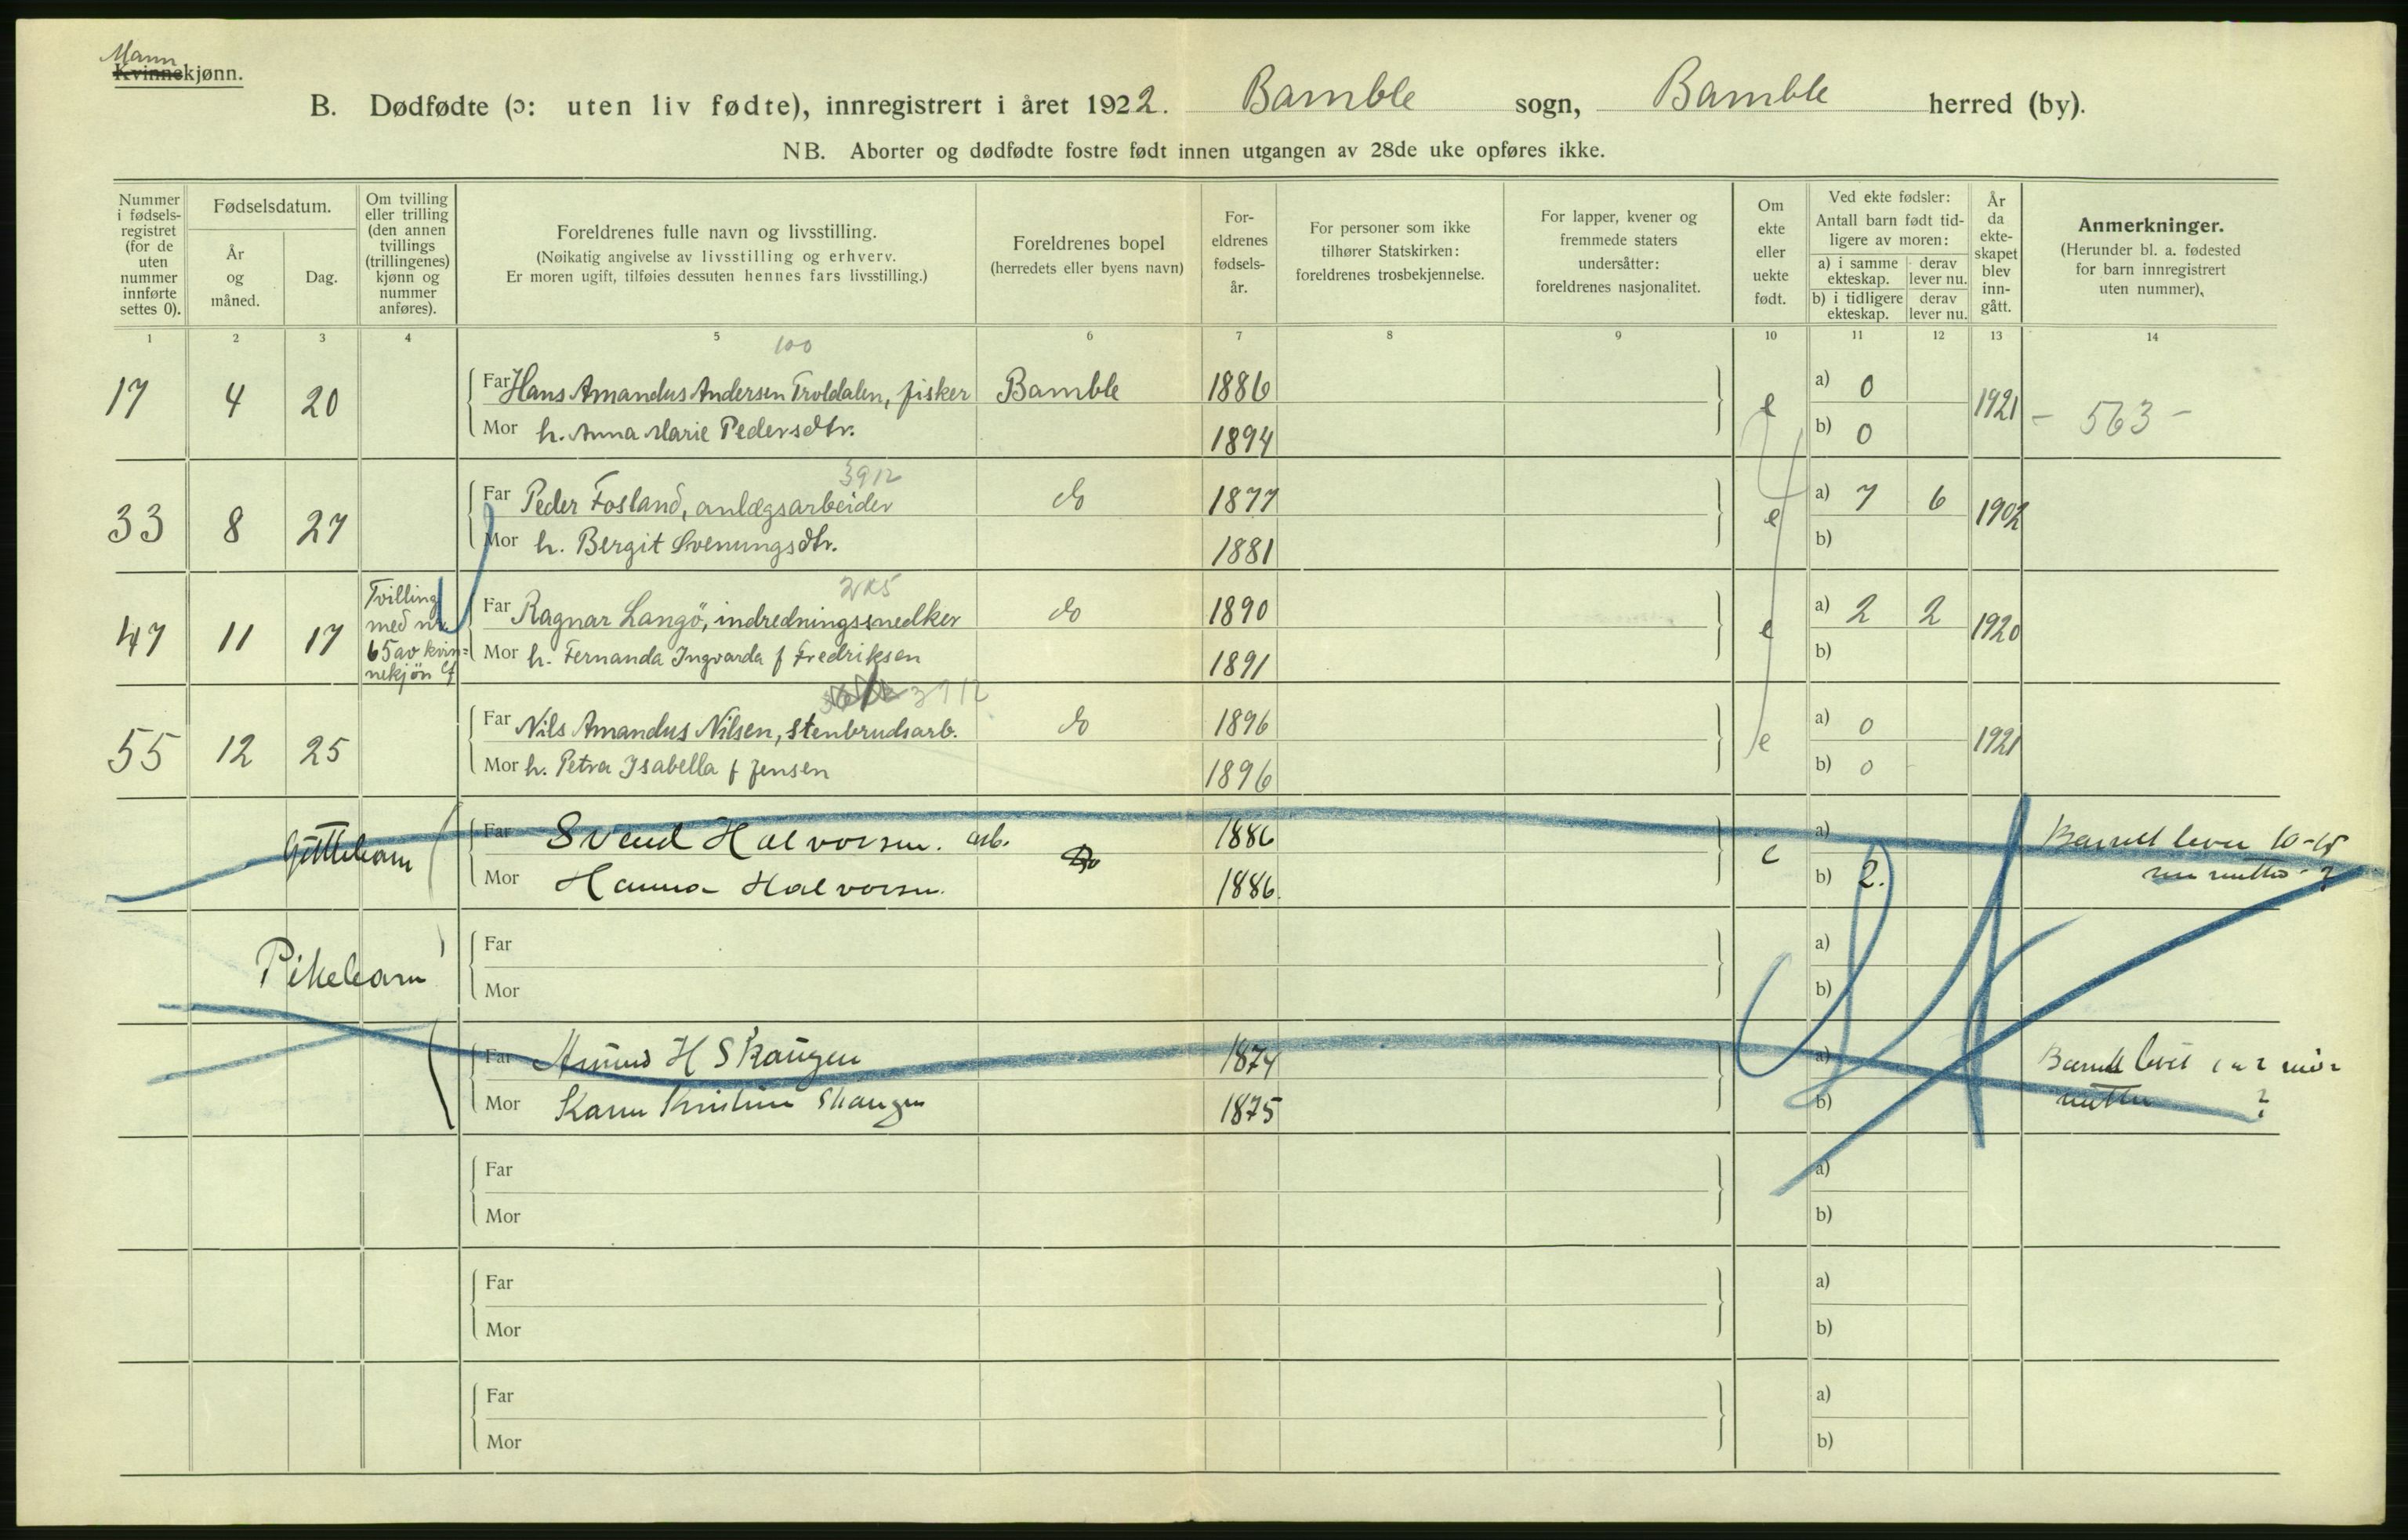 Mann
Kvinnekjønn.
B. Dødfødte (ɔ: uten liv fødte), innregistrert i året 1922. Bamble sogn, Bamble herred (by).
NB. Aborter og dødfødte fostre født innen utgangen av 28de uke opføres ikke.
Nummer
i fødsels-
registret
(for de
uten
nummer
innførte
settes 0).
Fødselsdatum.
År
og
måned.
Dag.
Om tvilling
eller trilling
(den annen
tvillings
(trillingenes)
kjønn og
nummer
anføres).
Foreldrenes fulle navn og livsstilling.
(Nøikatig angivelse av livsstilling og erhverv.
Er moren ugift, tilføies dessuten hennes fars livsstilling.)
Foreldrenes bopel
(herredets eller byens navn)
For-
eldrenes
fødsels-
år.
For personer som ikke
tilhører Statskirken:
foreldrenes trosbekjennelse.
For lapper, kvener og
fremmede staters
undersåtter:
foreldrenes nasjonalitet.
Om
ekte
eller
uekte
født.
Ved ekte fødsler:
Antall barn født tid-
ligere av moren:
a) i samme
ekteskap.
derav
lever nu.
b) i tidligere
ekteskap.
derav
lever nu.
År
da
ekte-
skapet
blev
inn-
gått.
Anmerkninger.
(Herunder bl. a. fødested
for barn innregistrert
uten nummer),
1 2 3 4 5 6 7 8 9 10 11 12 13 14
100
17 4 20 Far Hans Amandus Andersen Troldalen, fisker Bamble 1886 e a) 0 1921 - 563 -
Mor h. Anna Marie Pedersdtr. 1894 b) 0
3912
33 8 27 Far Peder Fosland, anlægsarbeider do 1877 e a) 7 6 1902
Mor h. Bergit Svenungsdtr. 1881 b)
Tvilling
med nr.
65 av kvin=
nekjön
47 11 17 Far Ragnar Langö, indredningssnedker do 1890 e a) 2 2 1920
Mor h. Fernanda Ingvarda f Fredriksen 1891 b)
3912
55 12 25 Far Nils Amandus Nilsen, stenbrudsarb. do 1896 e a) 0 1921
Mor h. Petra Isabella f Jensen 1896 b) 0
Guttebarn Far Svend Halvorsen. arb. Do 1886 e a) Barnet lever 10-15
Mor Hanna Halvorsen. 1886. b) 2. minutter ?
Pikebarn Far a)
Mor b)
Far H Skaugen 1874 a) Barnet
Mor Karen Kristine Skaugen 1875 b) ?
Far a)
Mor b)
Far a)
Mor b)
Far a)
Mor b)